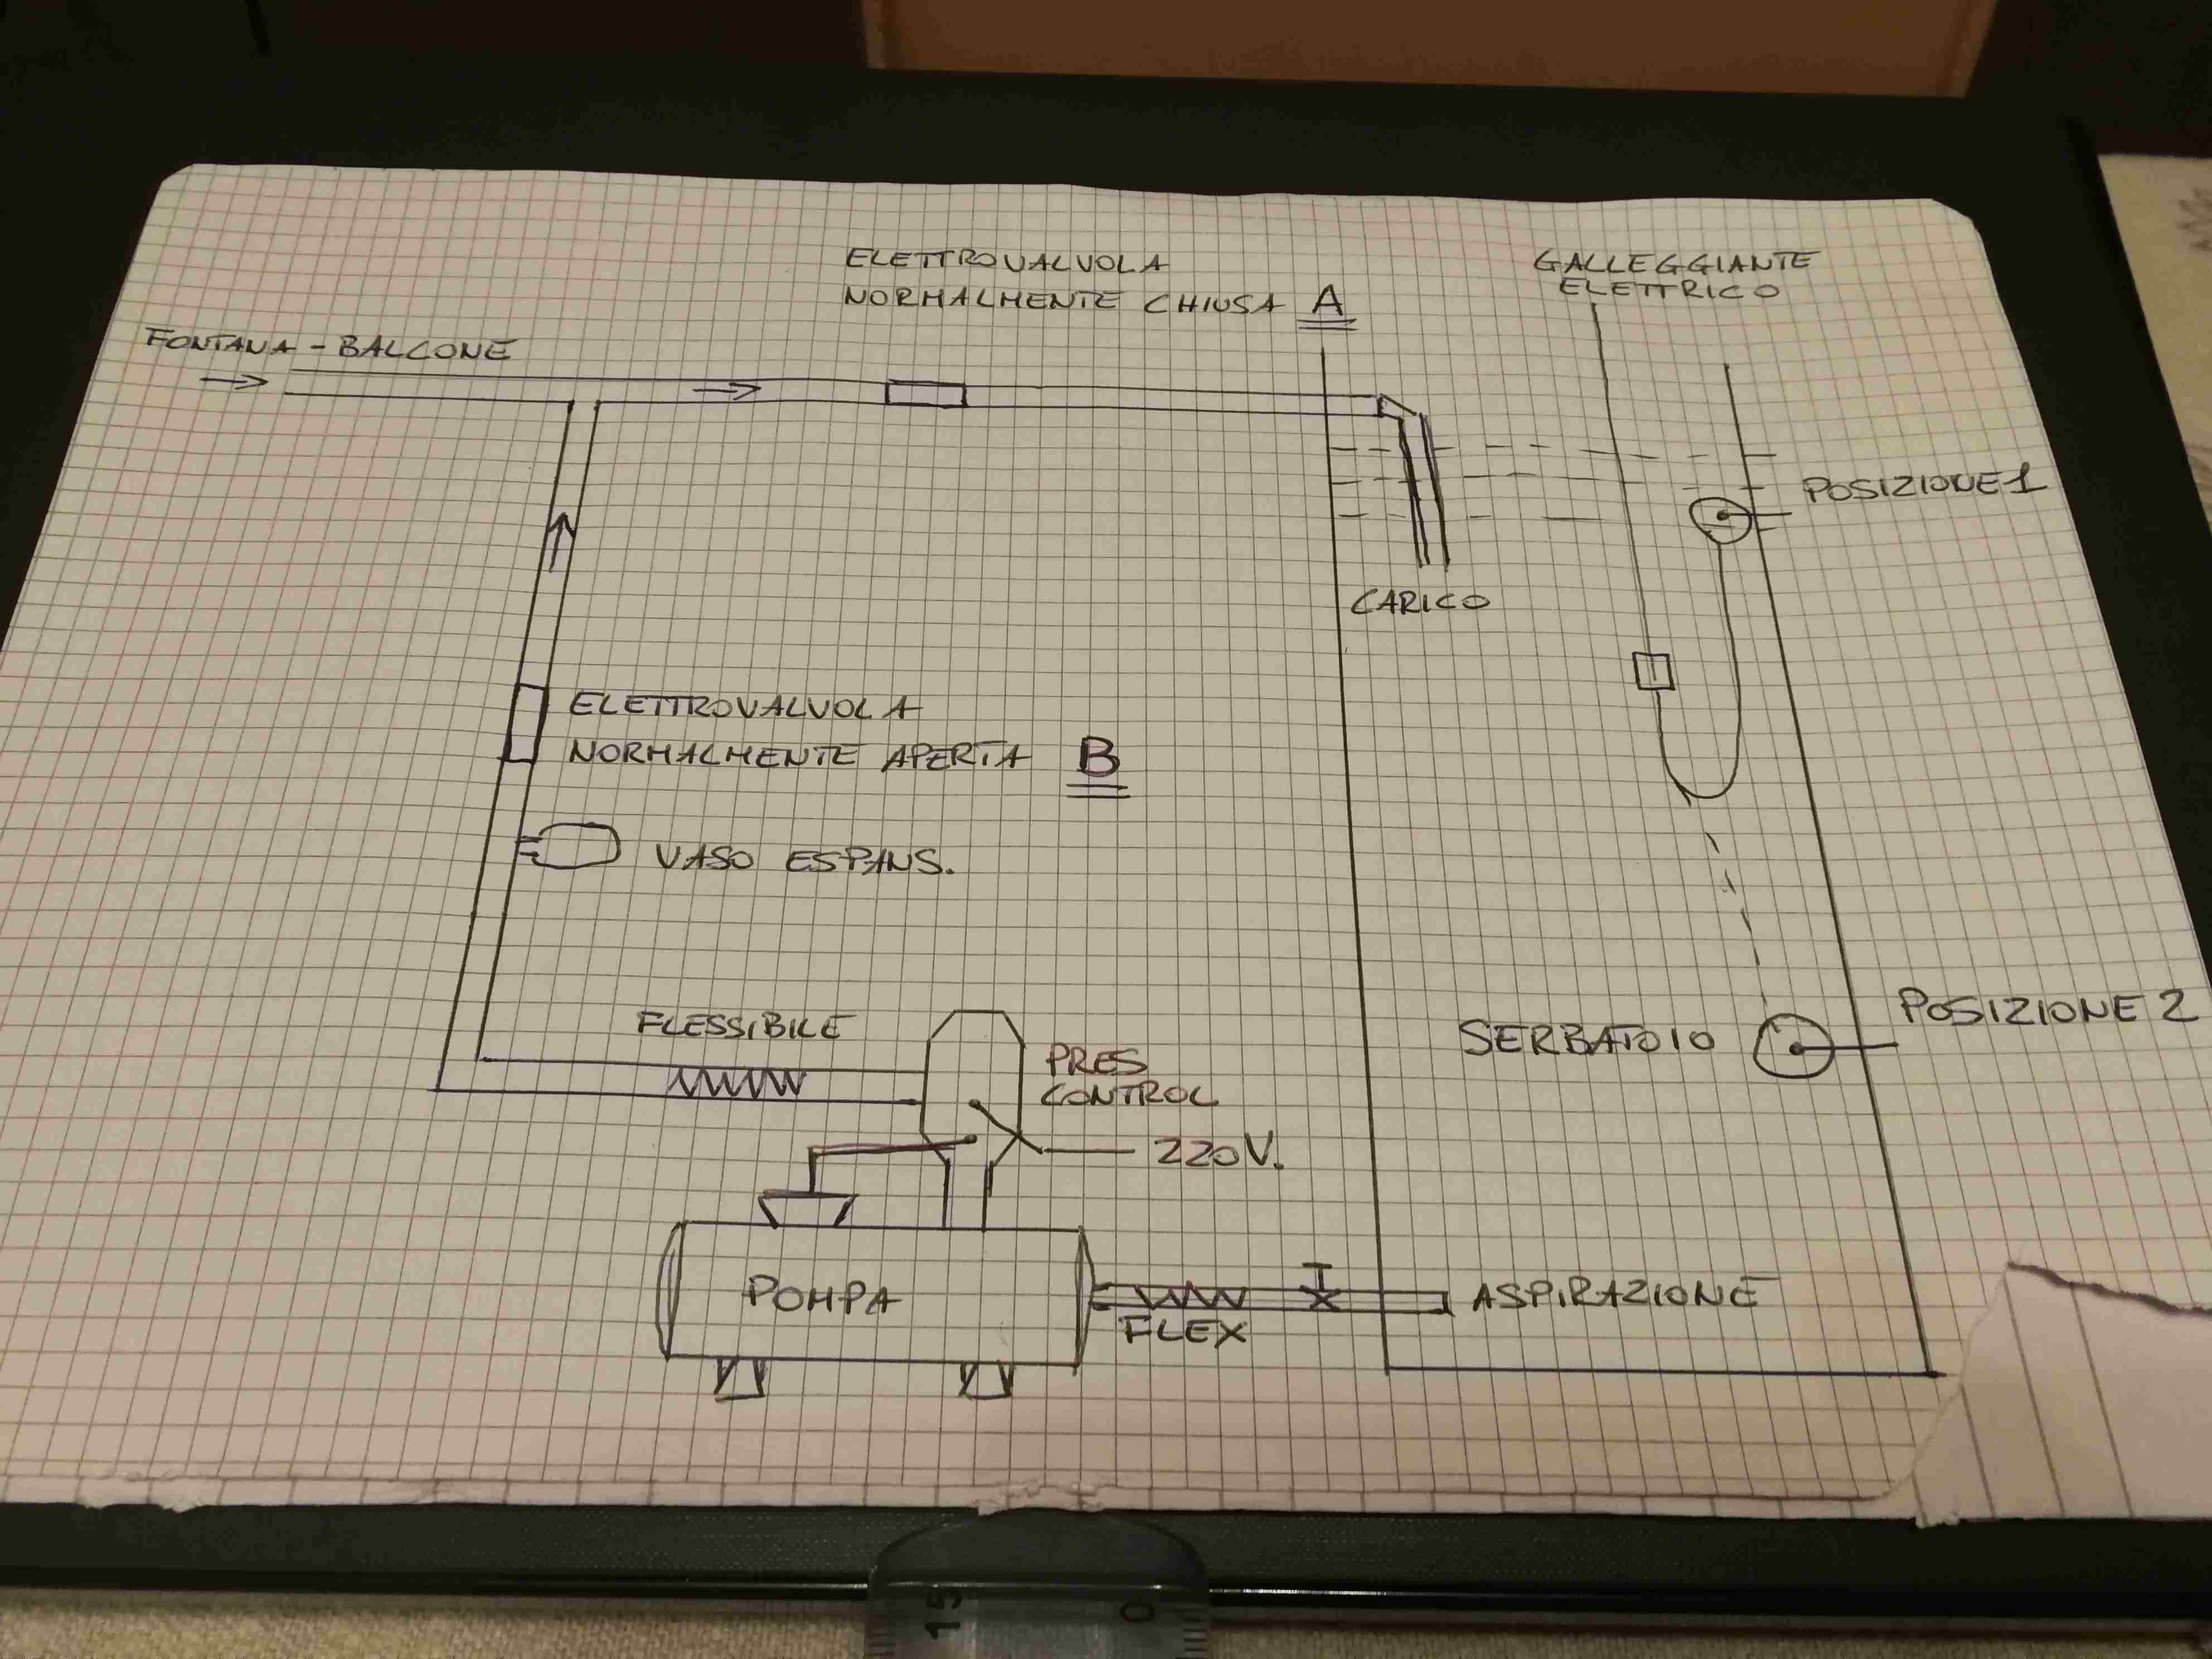 ELETTROVALVOLA
NORMALMENTE CHIUSA A
GALLEGGIANTE
ELETTRICO
FONTANA - BALCONE
POSIZIONE 1
CARICO
ELETTROVALVOLA
NORMALMENTE APERTA B
VASO ESPANS.
FLESSIBILE
PRES
CONTROL
220V.
SERBATOIO
POSIZIONE 2
POMPA
FLEX
ASPIRAZIONE
15 0